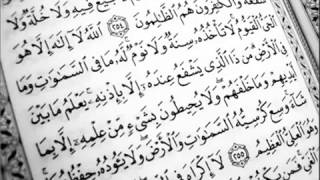 شفعة والكفرون هم الظلمون ٢٥٤ الله لا إله إلا هو
الحى القيوم لا تأخذه سنة ولا نوم له ما فى السموت وما
فى الأرض من ذا الذى يشفع عنده إلا بإذنه يعلم ما بين
أيديهم وما خلفهم ولا يحيطون بشىء من علمه إلا بما
شاء وسع كرسيه السموت والأرض ولا يئوده حفظهما
وهو العلى العظيم ٢٥٥ لا إكراه فى